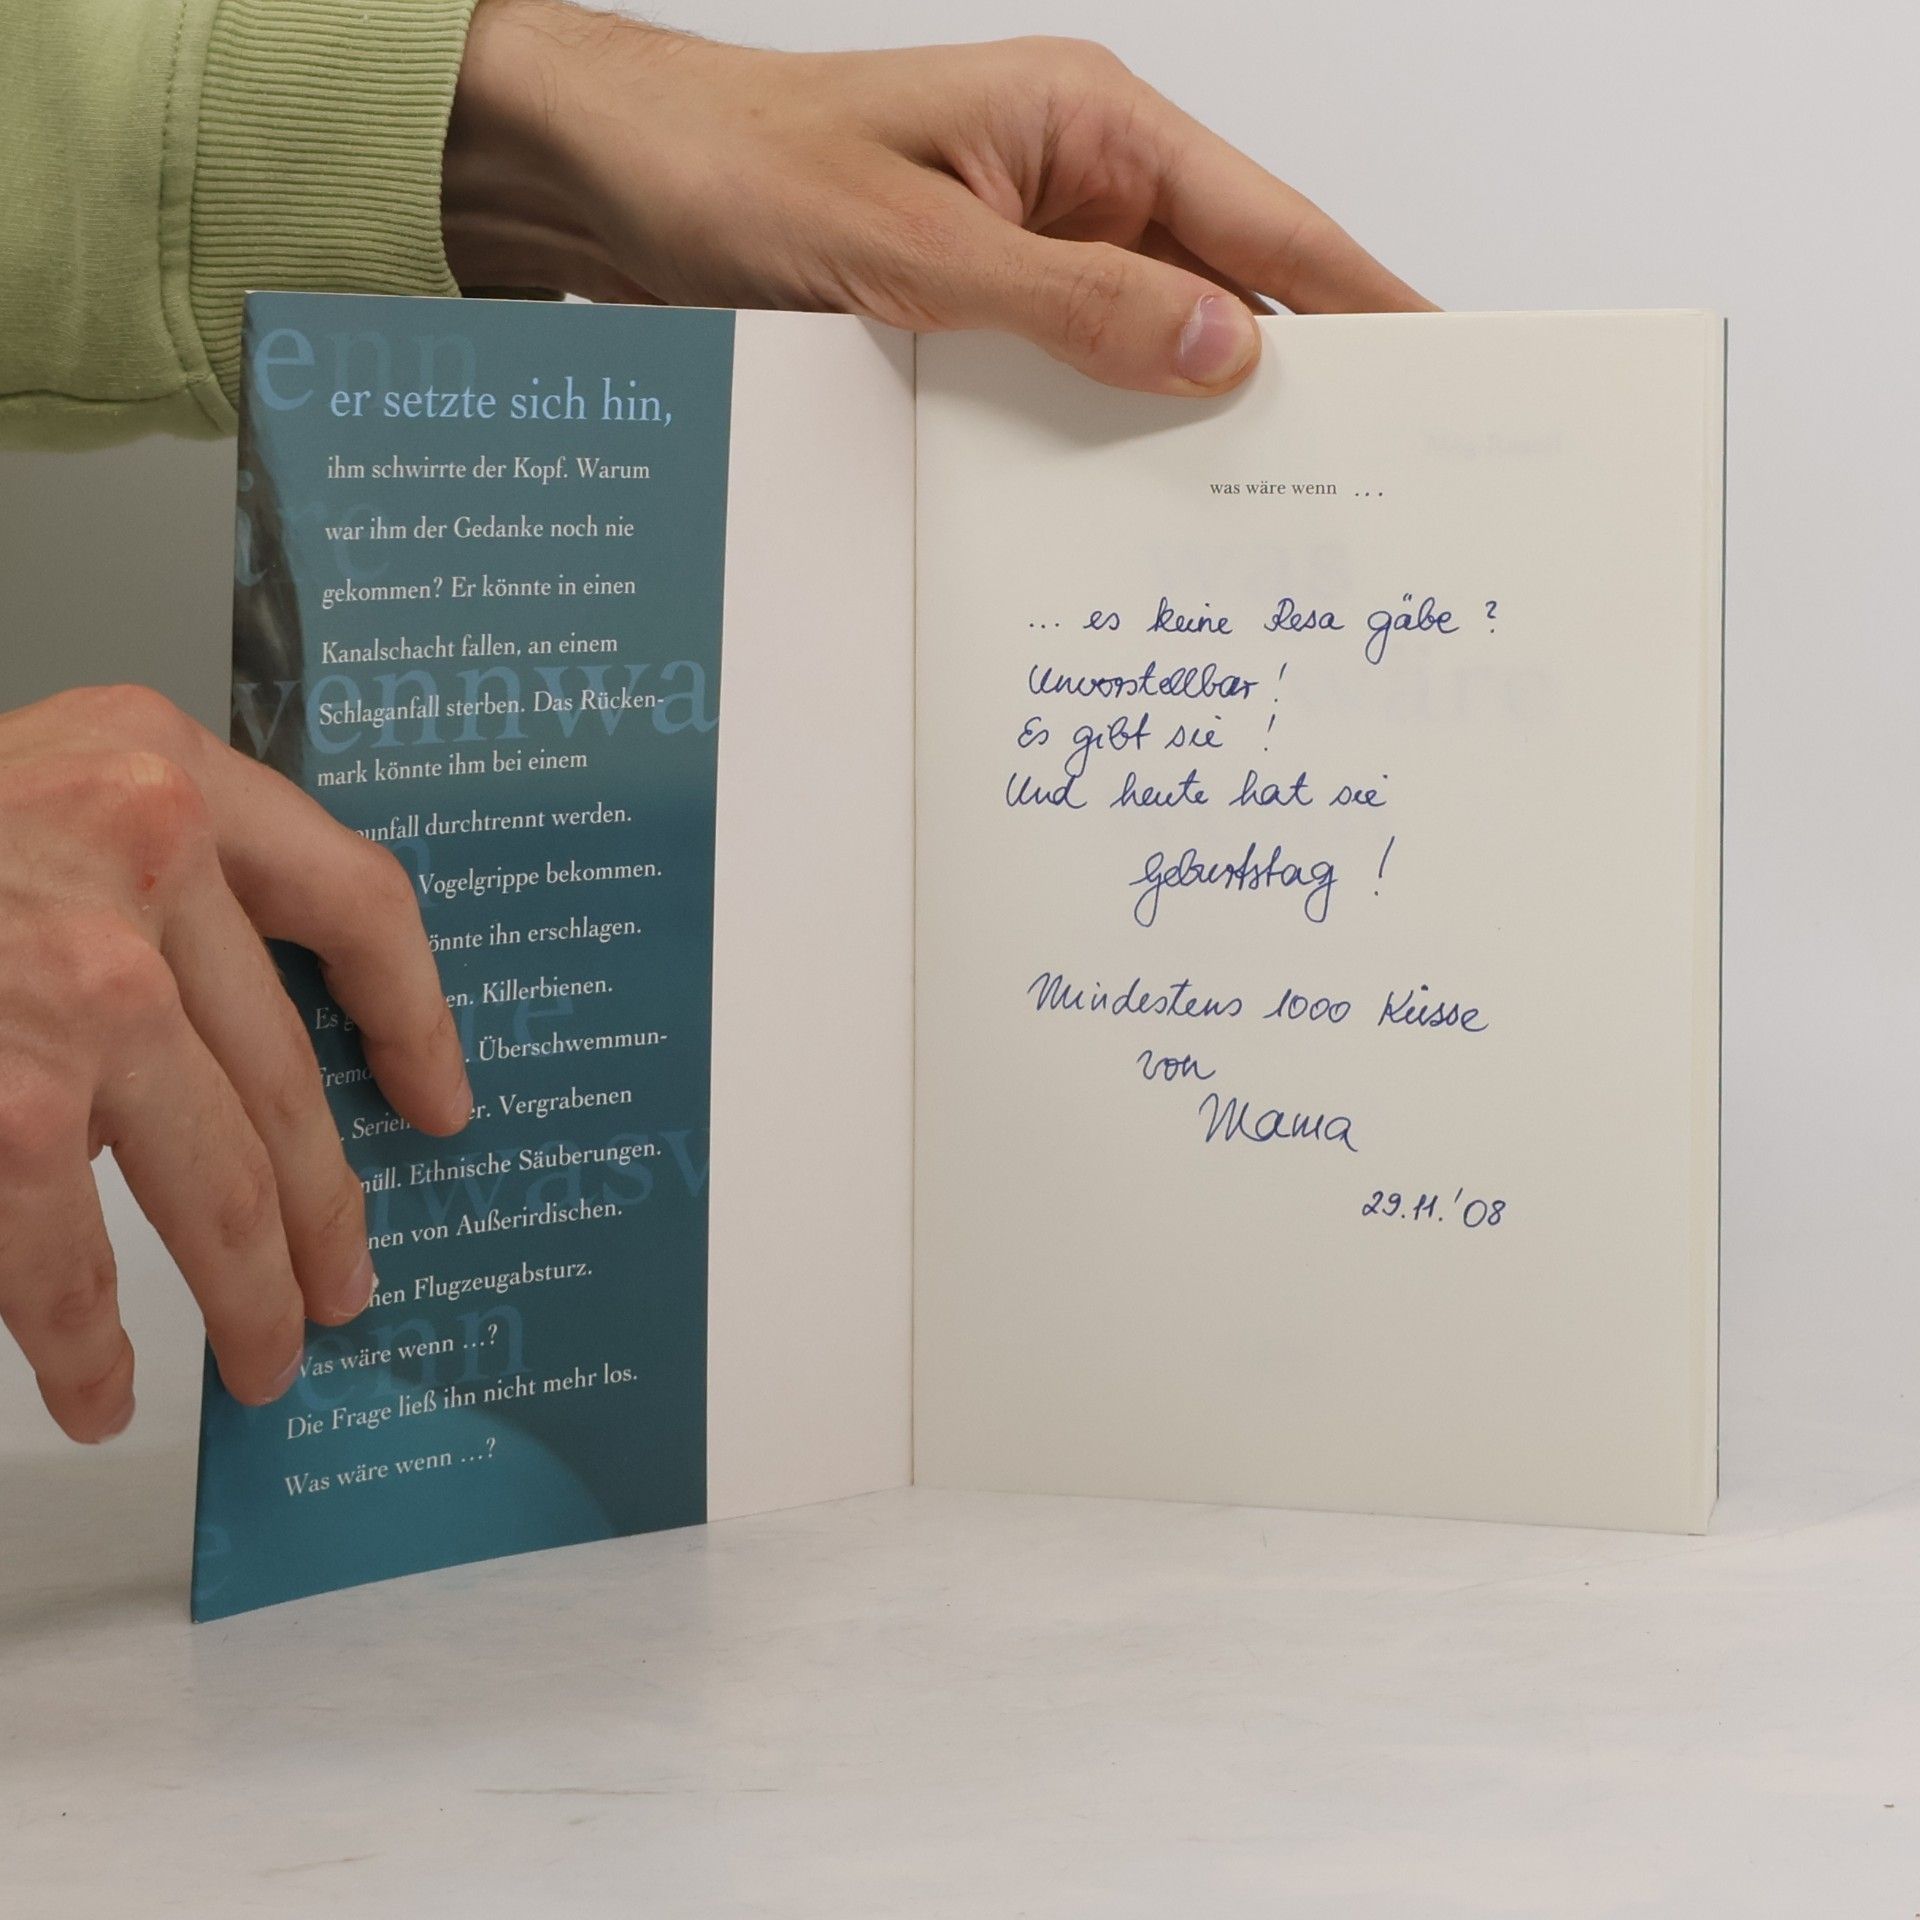 er setzte sich hin,
ihm schwirrte der Kopf. Warum
war ihm der Gedanke noch nie
gekommen? Er könnte in einen
Kanalschacht fallen, an einem
Schlaganfall sterben. Das Rücken-
mark könnte ihm bei einem
unfall durchtrennt werden.
Vogelgrippe bekommen.
önnte ihn erschlagen.
Es g en. Killerbienen.
Fremd . Überschwemmun-
. Serien er. Vergrabenen
müll. Ethnische Säuberungen.
nen von Außerirdischen.
hen Flugzeugabsturz.
Was wäre wenn ...?
Die Frage ließ ihn nicht mehr los.
Was wäre wenn ...?
was wäre wenn ...
... es keine Resa gäbe ?
Unvorstellbar !
Es gibt sie !
Und heute hat sie
Geburtstag !
Mindestens 1000 Küsse
von
Mama
29.11.'08